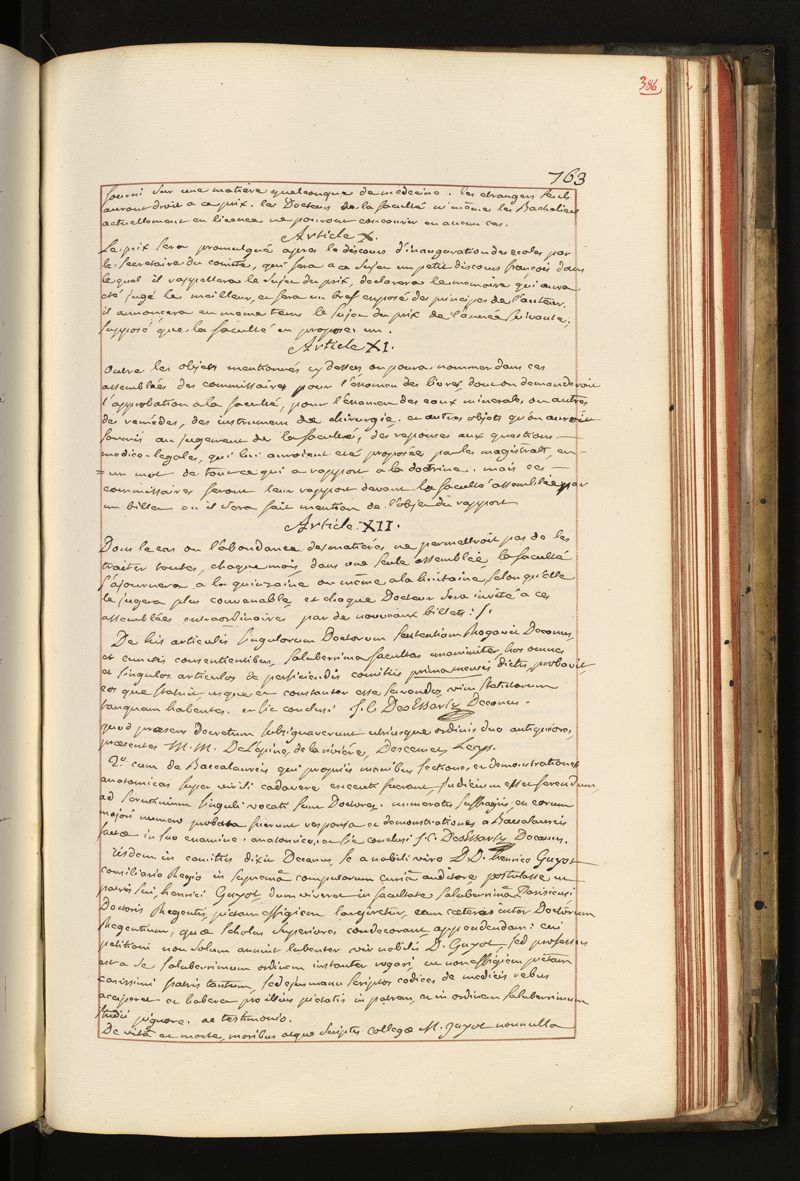 386
763
fourni sur une matiere quelconque de medecine. les etrangers seuls
auront droit a ce prix. les Docteurs de la faculté ni même les Bacheliers
actuellement en licence ne pouront concourir en aucun cas.
Article X.
Le prix sera promulgué apres le discours d'inauguration des ecoles par
le secretaire du comité, qui fera a ce sujet un petit discours françois dans
lequel il rappellera le sujet du prix, declarera le memoire qui aura
eté jugé le meilleur, et fera un bref exposé des principes de l'auteur.
il annoncera en meme tems le sujet du prix de l'année suivante,
supposé que la faculté en propose un.
Article XI.
Outre les objets mentionnés cy dessus on poura nommer dans ces
assemblées des commissaires pour l'examen des livres dont on demanderoit
l'approbation a la faculté, pour l'examen des eaux minerales ou autres
des remèdes, des instrumens de chirurgie et autres objets qu'on auroit
soumis au jugement de la faculté, des reponses aux questions
medico-legales, qui lui auroient eté proposées par les magistrats, en
= un mot de tout ce qui a rapport a la doctrine. mais ces
commissaires feront leur rapport devant la faculté assemblée par
un billet ou il sera fait mention de l'objet du rapport
Article XII.
Dans le cas ou l'abondance des matieres ne permettroit pas de les
traiter toutes, chaque mois, dans une seule assemblée, la faculté
s'ajournera a la quinzaine ou même a la huitaine, selon qu'elle
le jugera plus convenable, et chaque Docteur sera invité a ces
assemblées extraordinaires par de nouveaux billets. /.
De his articulis singulorum Doctorum sententiam Rogavit Decanus,
et cunctis consentientibus, saluberrima facultas unanimiter hos omnes
et singulos articulos de perficiendis comitiis prima mensis dictis, probavit,
eos que statuit usque et constanter esse servandos, vim statutorum
tanquam habentes. et sic conclusi J. C Des Essartz Decanus.
quod praesens Decretum subsignaverunt utriusque ordinis duo antiquiores,
praesentes M. M. De L'épine, de la riviére, Descemet, Leys.
2.o cum de Baccalaureis qui propriis manibus sectiones et demonstrationes
anatomicas super viridi cadavere executi fuerant, judicium esset ferendum,
ad scrutinium singuli vocati sunt Doctores. numeratis suffragiis, et eorum
majori numero probata fuerunt responsa et demonstrationes a Baccalaureis
factae in suo examine anatomico, et sic conclusi J. C. Des Essartz Decanus.
Iisdem in comitiis dixit Decanus, se a nobili viro D.D. Henrico Guyot
consiliario Regio in supremâ computorum curiâ auditore postulasse ut
patris sui henrici Guyot, dum viveret in facultate saluberrimâ Parisiensi
Doctoris Regentis, pictam effigiem largiretur, eam caeteras inter Doctorum
Regentium, quae scholas superiores condecorant, appendendam: cui
petitioni non solum annuit lubenter vir nobilis D. Guyot, sed professus
est a se saluberrimum ordinem instanter rogari ut non effigiem pictam
carissimi patris tantum, sed ejus manu scriptos codices de medicis rebus
acciperet et haberet pro illius pietatis in patrem, et in ordinem saluberrimum
studii pignore ac testimonio.
De vitâ et morte, moribus atque scriptis collegae M. Guyot nonnulla